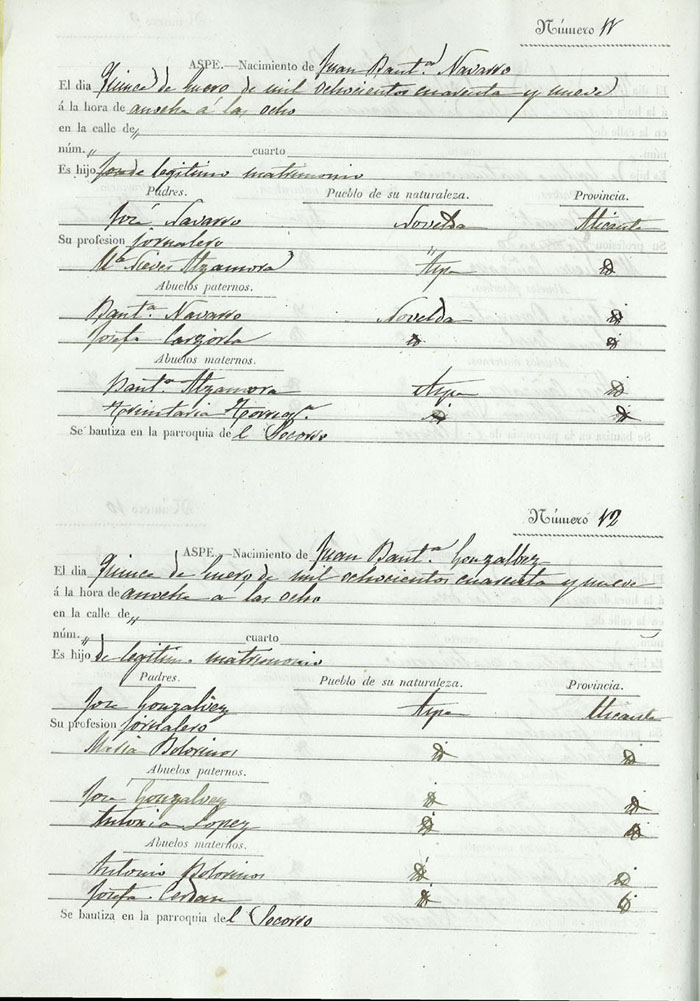 Número 11
ASPE.—Nacimiento de Juan Baut.ª Navarro
El dia Quince de Enero de mil ochocientos cuarenta y nueve
á la hora de anoche á las ocho
en la calle de „
núm. „ cuarto
Es hijo de legitimo matrimonio
Padres. Pueblo de su naturaleza. Provincia.
José Navarro Novelda Alicante
Su profesion jornalero „
M.ª Nieves Alzamora Aspe id
Abuelos paternos.
Baut.ª Navarro Novelda id
Josefa Cazorla id id
Abuelos maternos.
Baut.ª Alzamora Aspe id
id id
Se bautiza en la parroquia de l Socorro
Número 12
ASPE.—Nacimiento de Juan Baut.ª Gonzalbez
El dia Quince de Enero de mil ochocientos cuarenta y nueve
á la hora de anoche a las ocho
en la calle de „
núm. „ cuarto
Es hijo de legitim. matrimonio
Padres. Pueblo de su naturaleza. Provincia.
José Gonzalvez Aspe Alicante
Su profesion jornalero
Maria Bolorinos id id
Abuelos paternos.
José Gonzalvez id id
Antonia Lopez id id
Abuelos maternos.
Antonio Bolorinos id id
Josefa Cerdan id id
Se bautiza en la parroquia de l Socorro